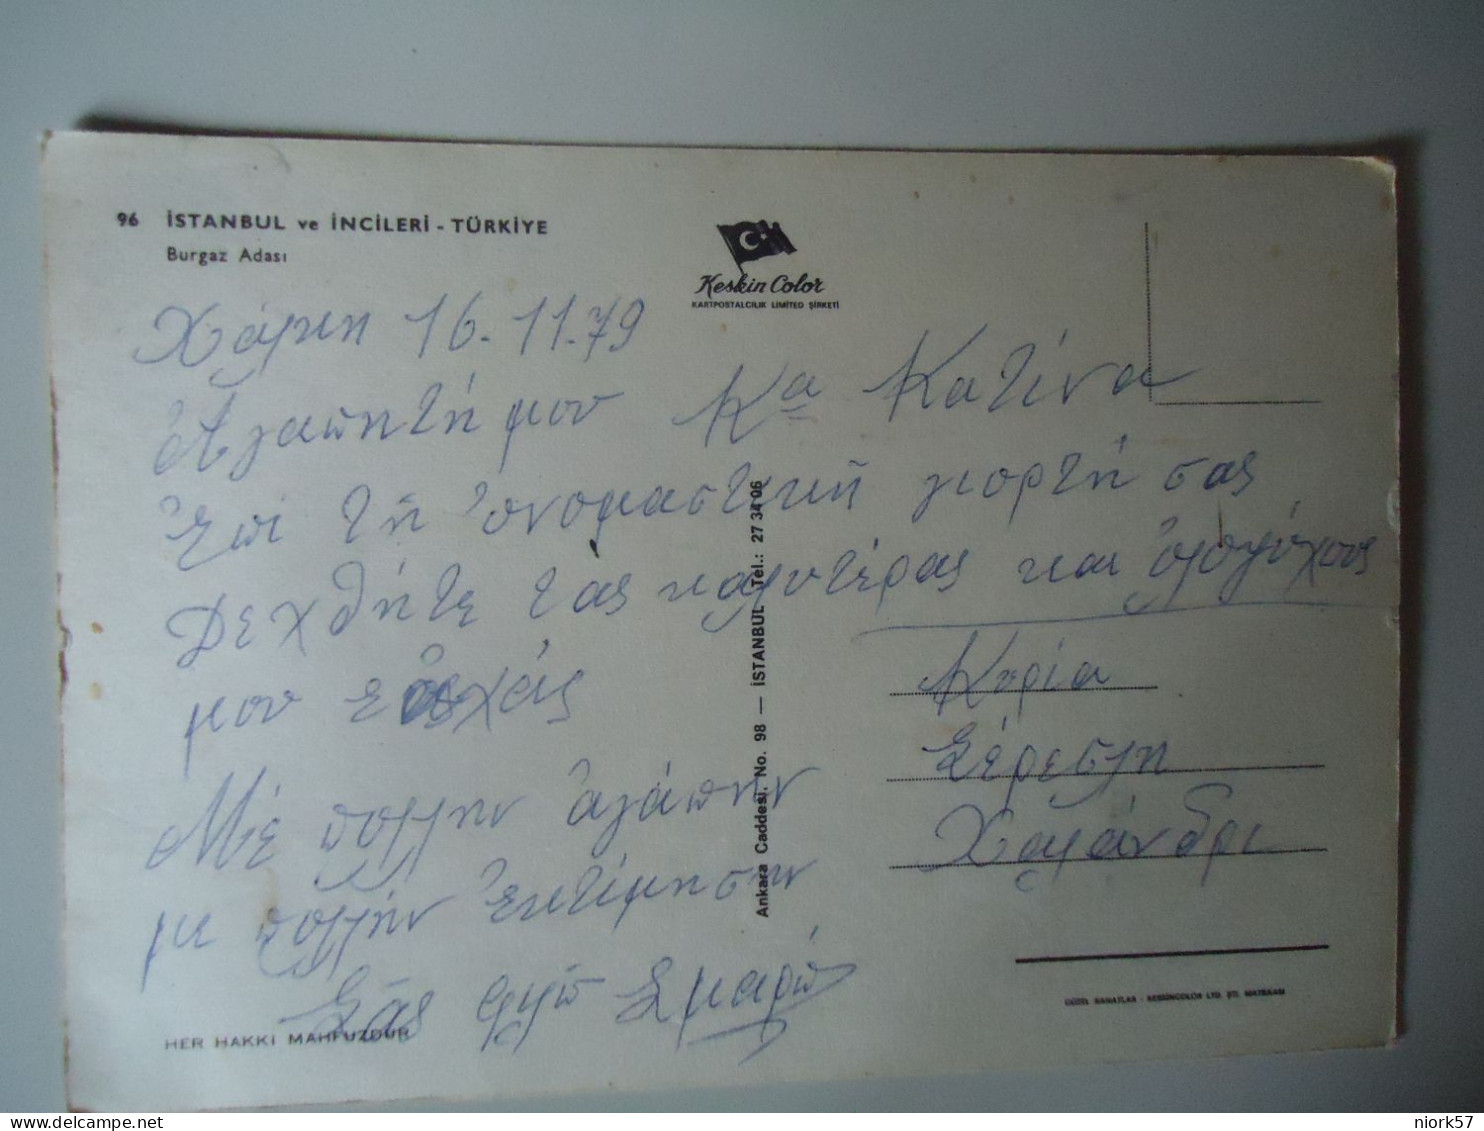 96 İSTANBUL ve İNCİLERİ - TÜRKİYE
Burgaz Adası
Keskin Color
KARTPOSTALCILIK LIMITED ŞİRKETİ
Χάλκη 16.11.79
Ἀγαπητή μου Κα Κατίνα
Ἐπί τῇ ὀνομαστικῇ γιορτή σας
Δεχθῆτε τάς καλυτέρας και ὁλοψύχους
μου εὐχάς
Μέ πολλην ἀγάπην
με πολλήν ἐκτίμησην
Σᾶς φιλῶ Σμαρώ
Κυρία
Σέρεσλη
Χαλάνδρι
Ankara Caddesi, No. 98 — İSTANBUL Tel.: 27 34 06
HER HAKKI MAHFUZDUR
GÜZEL SANATLAR - KESKİNCOLOR LTD. ŞTİ. MATBAASI
niork57